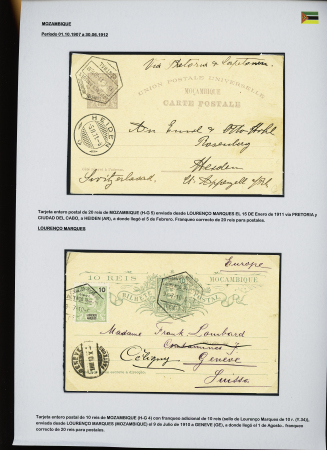 MOZAMBIQUE
Periodo 01.10.1907 a 30.06.1912
Via Pretoria & Capetown
UNION POSTALE UNIVERSELLE
MOÇAMBIQUE
CARTE POSTALE
HEIDEN
Rosenberg
Heiden
Switzerland
Tarjeta entero postal de 20 reis de MOZAMBIQUE (H-G 5) enviada desde LOURENÇO MARQUES EL 15 DE Enero de 1911 via PRETORIA y
CIUDAD DEL CABO, a HEIDEN (AR), a donde llegó el 5 de Febrero. Franqueo correcto de 20 reis para postales.
LOURENÇO MARQUES
Europe
10 REIS
MOÇAMBIQUE
BILHETE POSTAL
10
Madame Frank Lombard
Genève
Suisse
Tarjeta entero postal de 10 reis de MOZAMBIQUE (H-G 4) con franqueo adicional de 10 reis (sello de Lourenço Marques de 10 r. (Y.34)),
enviada desde LOURENÇO MARQUES (MOZAMBIQUE) el 9 de Julio de 1910 a GENEVE (GE), a donde llegó el 1 de Agosto . franqueo
correcto de 20 reis para postales.